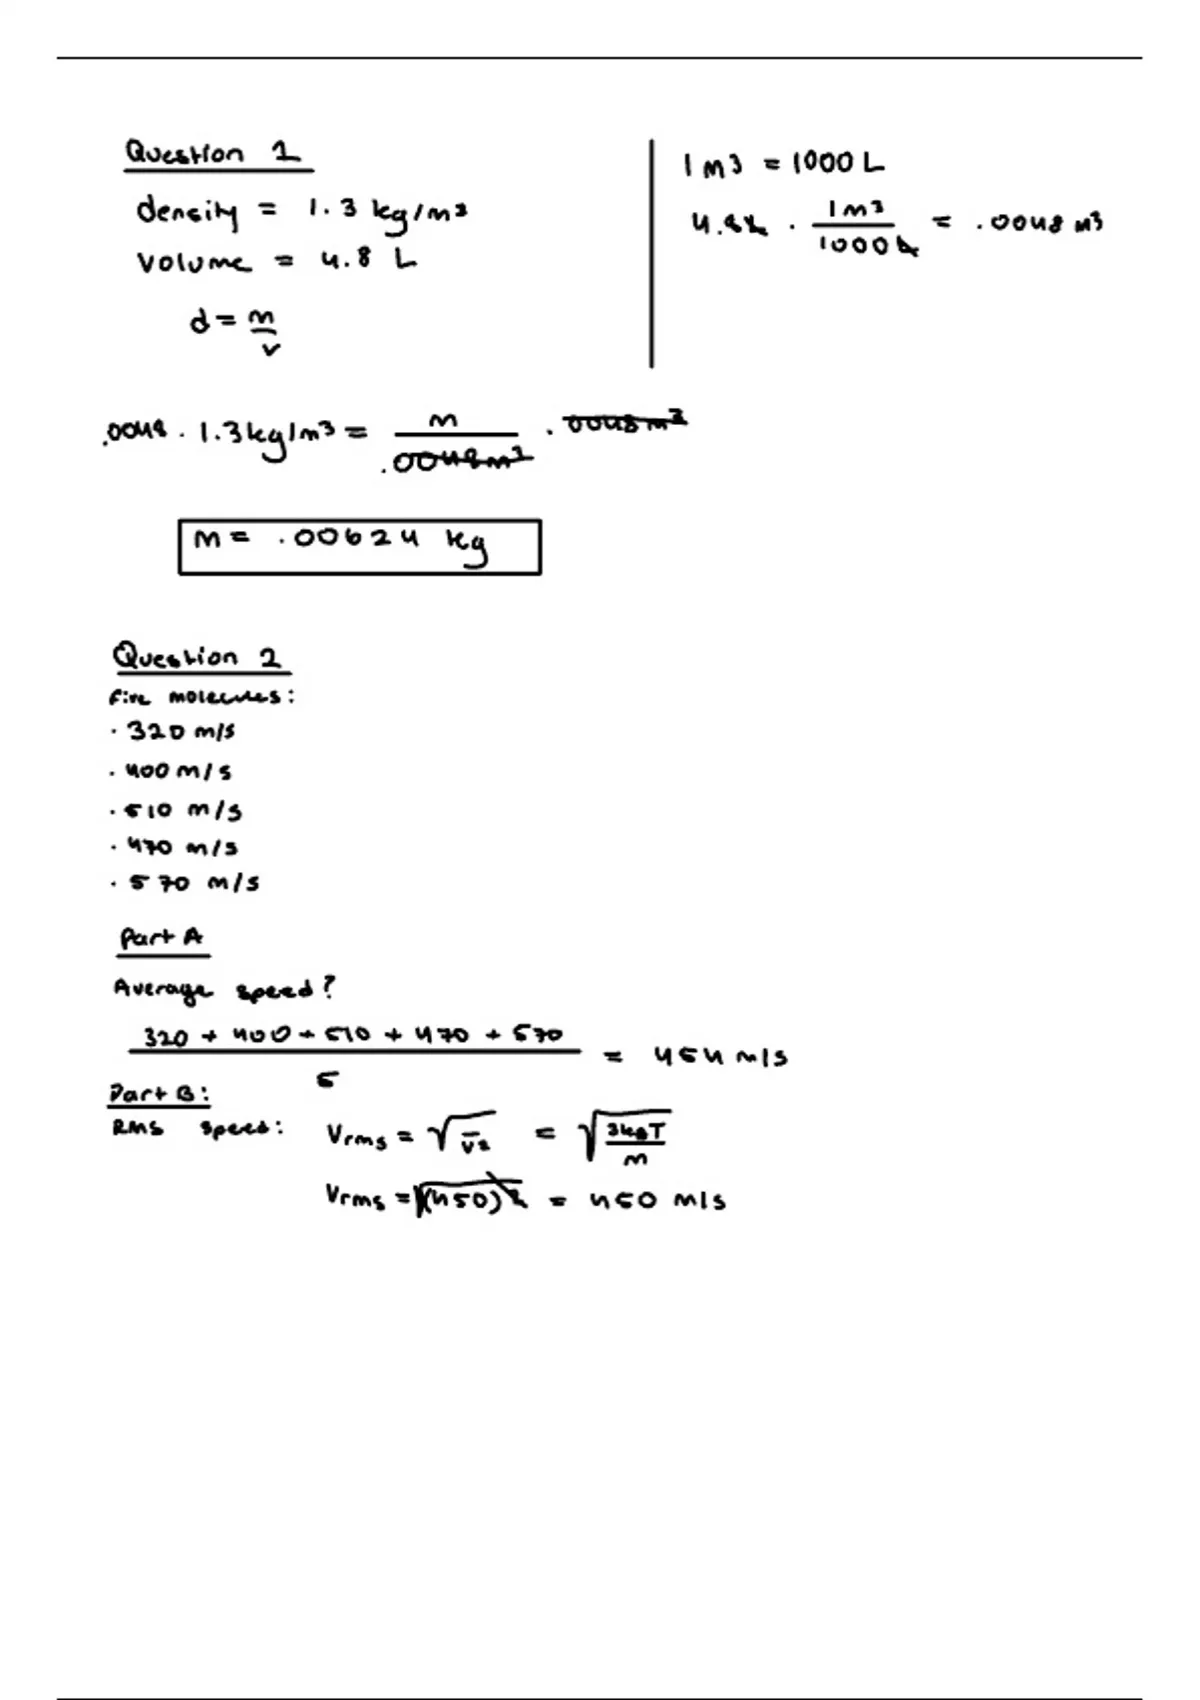 Question 1
density = 1.3 kg/m3
volume = 4.8 L
d = m/v
1 m3 = 1000 L
4.8L · 1m3/1000L = .0048 m3
.0048 · 1.3kg/m3 = m/.0048m3 · .0048m3
m = .00624 kg
Question 2
Five molecules:
· 320 m/s
· 400 m/s
· 510 m/s
· 470 m/s
· 570 m/s
Part A
Average speed?
320 + 400 + 510 + 470 + 570 / 5 = 454 m/s
Part B:
RMS speed: Vrms = √v̅2 = √3kBT/m
Vrms = √(450)2 = 450 m/s